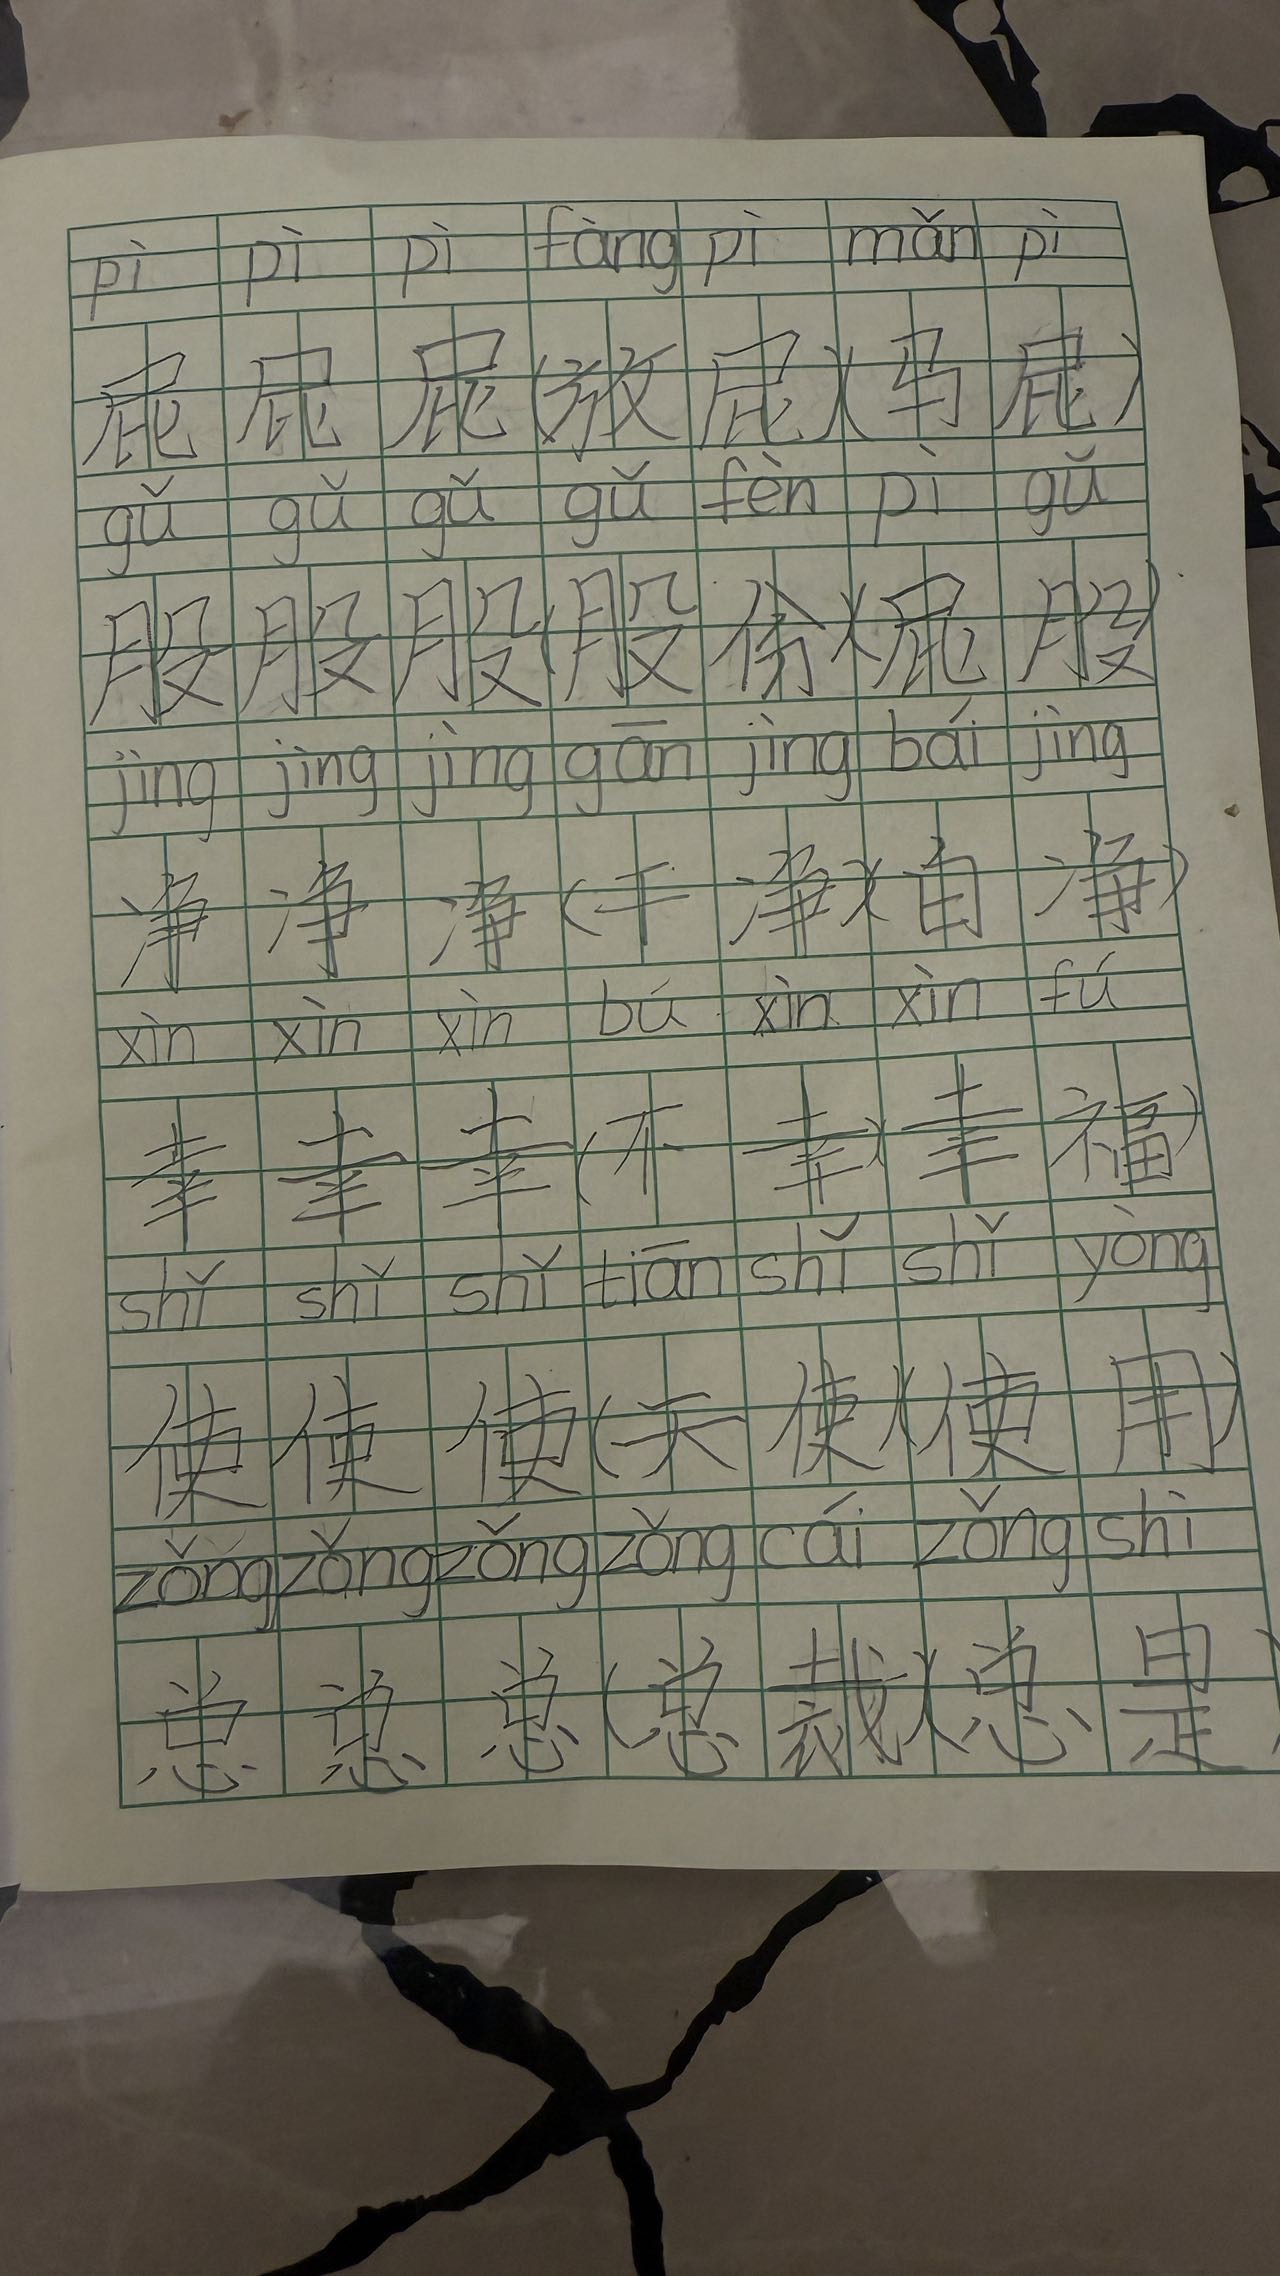 pì pì pì fàng pì mǎn pì
屁 屁 屁 (放 屁)(马 屁)
gǔ gǔ gǔ gǔ fèn pì gǔ
股 股 股 (股 份)(屁 股)
jìng jìng jìng gān jìng bái jìng
净 净 净 (干 净)(白 净)
xìn xìn xìn bú xìn xìn fú
幸 幸 幸 (不 幸)(幸 福)
shǐ shǐ shǐ tiān shǐ shǐ yòng
使 使 使 (天 使)(使 用)
zǒng zǒng zǒng zǒng cái zǒng shì
总 总 总 (总 裁)(总 是)